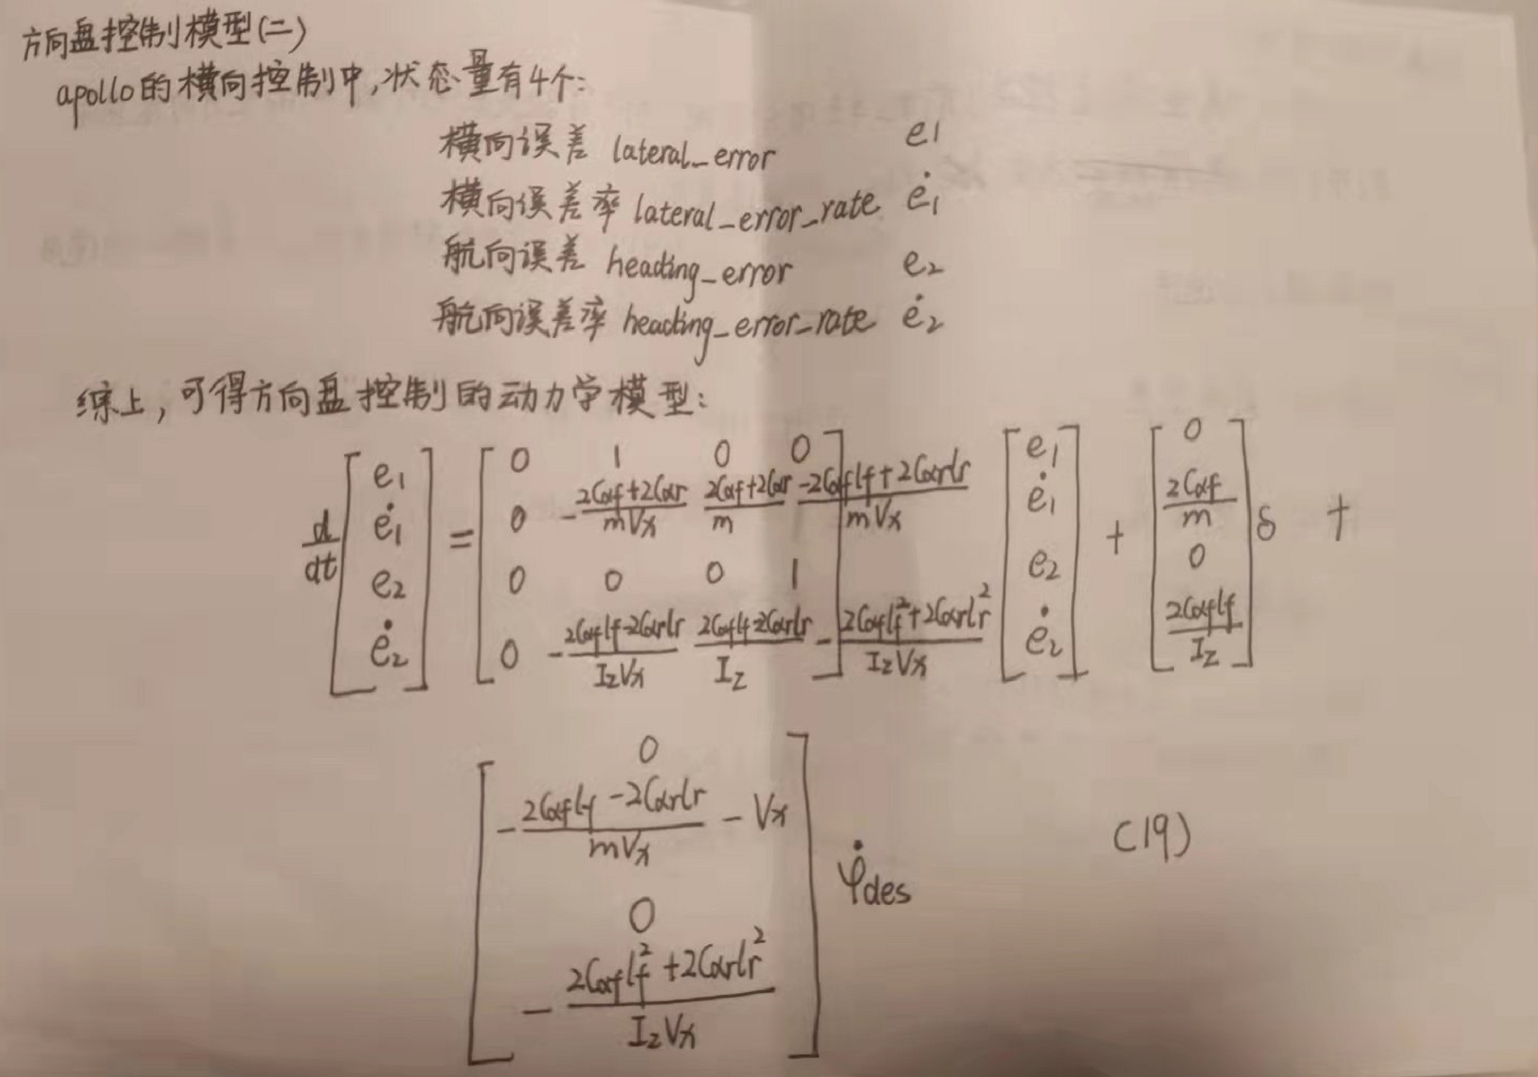 方向盘控制模型(二)
apollo的横向控制中,状态量有4个:
横向误差 lateral_error e1
横向误差率 lateral_error_rate ė1
航向误差 heading_error e2
航向误差率 heading_error_rate ė2
综上,可得方向盘控制的动力学模型:
d/dt [e1; ė1; e2; ė2] = [0 1 0 0; 0 -(2Cαf+2Cαr)/(mVx) (2Cαf+2Cαr)/m (-2Cαflf+2Cαrlr)/(mVx); 0 0 0 1; 0 -(2Cαflf-2Cαrlr)/(IzVx) (2Cαflf-2Cαrlr)/Iz -(2Cαflf²+2Cαrlr²)/(IzVx)] [e1; ė1; e2; ė2] + [0; 2Cαf/m; 0; 2Cαflf/Iz] δ +
[0; -(2Cαflf-2Cαrlr)/(mVx) - Vx; 0; -(2Cαflf²+2Cαrlr²)/(IzVx)] φ̇des (19)